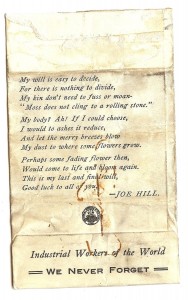 My will is easy to decide,
For there is nothing to divide,
My kin don't need to fuss or moan-
"Moss does not cling to a rolling stone."
My body? Ah! If I could choose,
I would to ashes it reduce,
And let the merry breezes blow
My dust to where some flowers grow.
Perhaps some fading flower then,
Would come to life and bloom again.
This is my last and final will,
Good luck to all of you.
—JOE HILL.
Industrial Workers of the World
WE NEVER FORGET